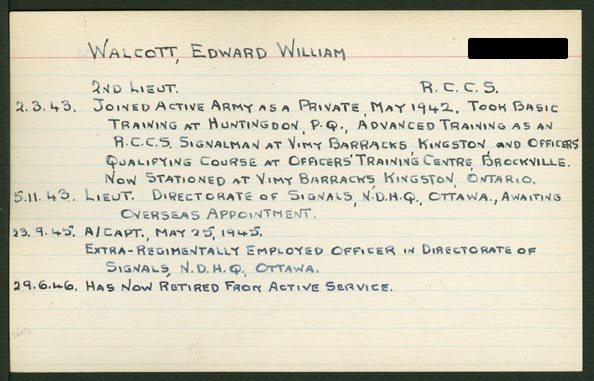 WALCOTT, EDWARD WILLIAM
2ND LIEUT. R.C.C.S.
2.3.43. JOINED ACTIVE ARMY AS A PRIVATE, MAY 1942. TOOK BASIC
TRAINING AT HUNTINGDON, P.Q., ADVANCED TRAINING AS AN
R.C.C.S. SIGNALMAN AT VIMY BARRACKS, KINGSTON, AND OFFICERS'
QUALIFYING COURSE AT OFFICERS' TRAINING CENTRE, BROCKVILLE.
NOW STATIONED AT VIMY BARRACKS, KINGSTON, ONTARIO.
5.11.43. LIEUT. DIRECTORATE OF SIGNALS, N.D.H.Q., OTTAWA., AWAITING
OVERSEAS APPOINTMENT.
23.9.45. A/CAPT., MAY 25, 1945.
EXTRA-REGIMENTALLY EMPLOYED OFFICER IN DIRECTORATE OF
SIGNALS, N.D.H.Q., OTTAWA.
29.6.46. HAS NOW RETIRED FROM ACTIVE SERVICE.